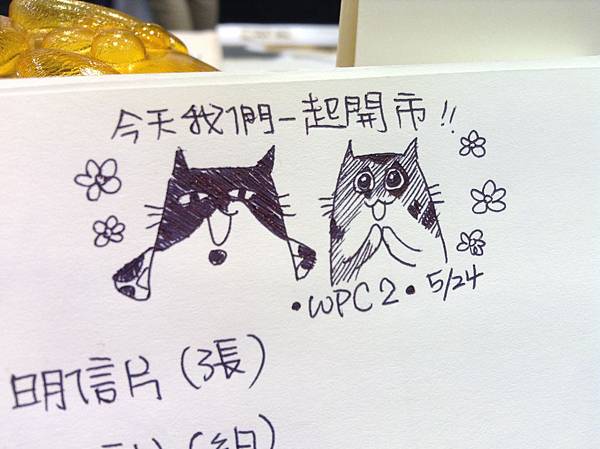 今天我們一起開市!!
•WPC2•5/24
明信片(3張)
(組)